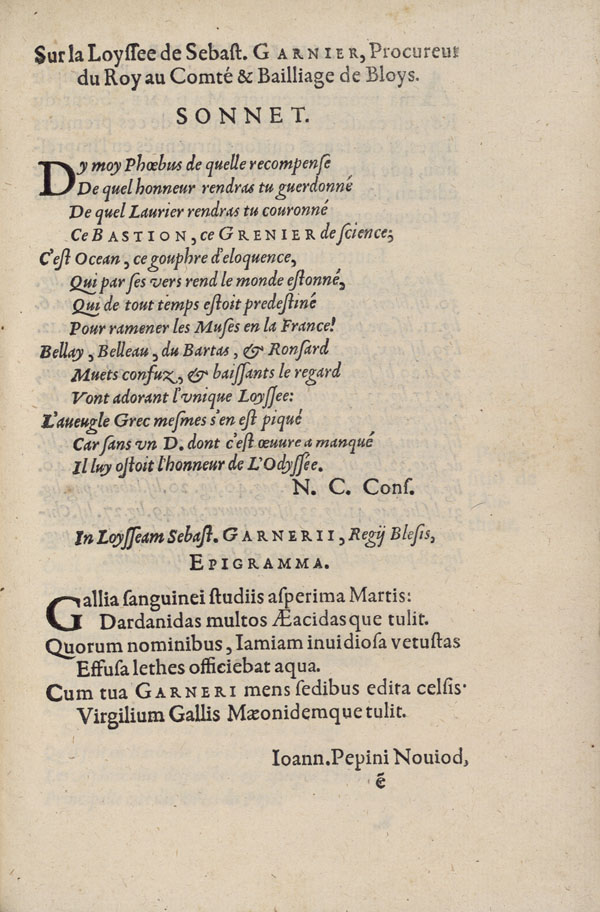 Sur la Loyſſee de Sebaſt. GARNIER, Procureur
du Roy au Comté & Bailliage de Bloys.
SONNET.
Dy moy Phœbus de quelle recompenſe
De quel honneur rendras tu guerdonné
De quel Laurier rendras tu couronné
Ce BASTION, ce GRENIER de ſcience;
C'eſt Ocean, ce gouphre d'eloquence,
Qui par ſes vers rend le monde eſtonné,
Qui de tout temps eſtoit predeſtiné
Pour ramener les Muſes en la France!
Bellay, Belleau, du Bartas, & Ronſard
Muets confuz, & baiſſants le regard
Vont adorant l'vnique Loyſſee:
L'aueugle Grec meſmes s'en eſt piqué
Car ſans vn D. dont c'eſt œuure a manqué
Il luy oſtoit l'honneur de L'Odyſſée.
N. C. Conſ.
In Loyſſeam Sebaſt. GARNERII, Regij Bleſis,
EPIGRAMMA.
Gallia ſanguinei ſtudiis aſperima Martis:
Dardanidas multos Æacidasque tulit.
Quorum nominibus, Iamiam inuidioſa vetuſtas
Effuſa lethes officiebat aqua.
Cum tua GARNERI mens ſedibus edita celſis·
Virgilium Gallis Mæonidemque tulit.
Ioann. Pepini Nouiod,
ẽ